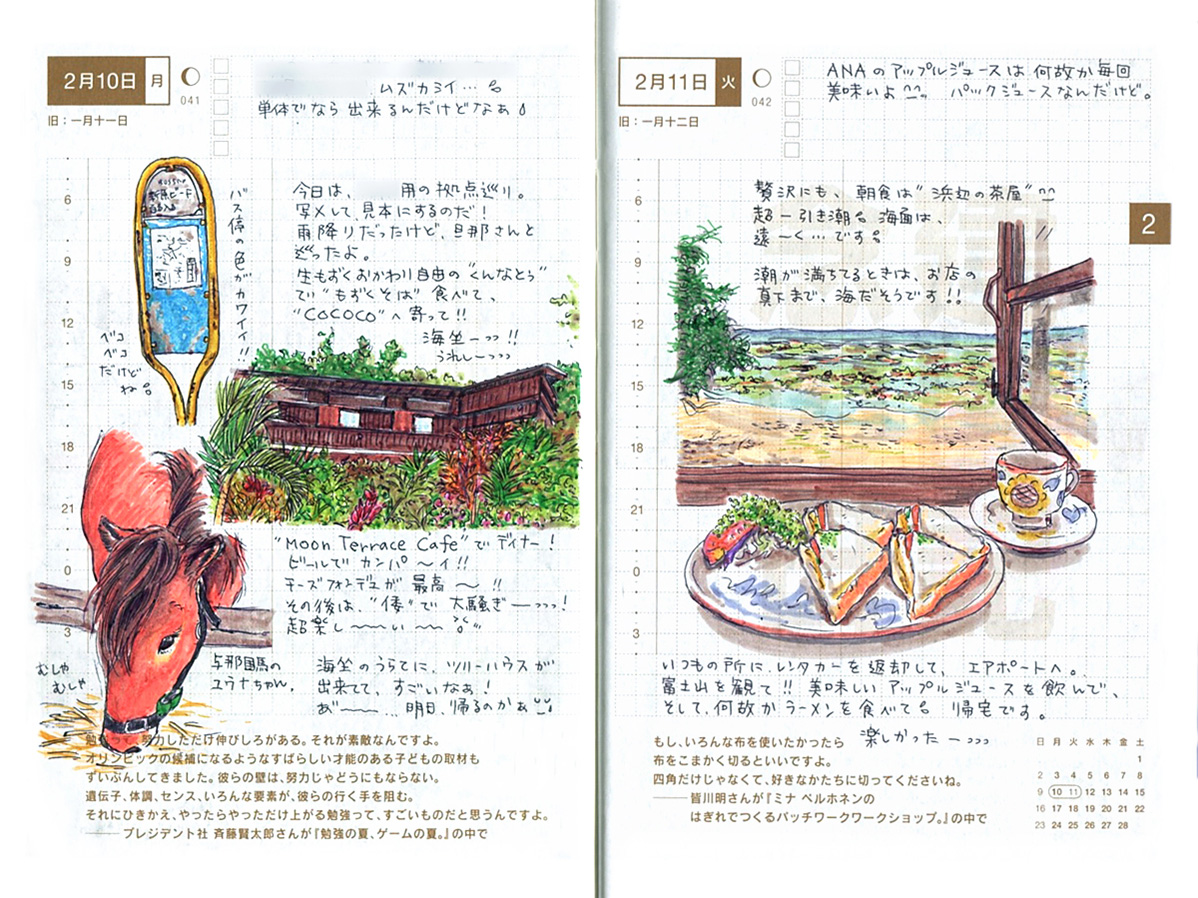 2月10日 月
041
旧：一月十一日
ムズカシイ…。
単体でなら出来るんだけどなぁ
6
9
12
15
18
21
0
3
バス停の色がカワイイ!!
ベコ
ベコ
だけど
ね。
今日は、 用の拠点巡り。
写メして、見本にするのだ！
雨降りだったけど、旦那さんと
巡ったよ。
生もずくおかわり自由の“くんなとぅ”
で“もずくそば”食べて、
“COCOCO”へ寄って!!
海坐ーっっ!!
うれしーっっっ
“Moon Terrace Cafe”でディナー！
ビールでカンパ〜イ!!
チーズフォンデュが最高〜!!
その後は、“倭”で大騒ぎーっっっ！
超楽し〜〜い〜〜
与那国馬の
ユウナちゃん。
むしゃ
むしゃ
海坐のうらてに、ツリーハウスが
出来てて、すごいなぁ！
あ゛〜〜…明日、帰るのかぁ
努力しただけ伸びしろがある。それが素敵なんですよ。
オリンピックの候補になるようなすばらしい才能のある子どもの取材も
ずいぶんしてきました。彼らの壁は、努力じゃどうにもならない。
遺伝子、体調、センス、いろんな要素が、彼らの行く手を阻む。
それにひきかえ、やったらやっただけ上がる勉強って、すごいものだと思うんですよ。
――プレジデント社 斉藤賢太郎さんが『勉強の夏、ゲームの夏。』の中で
2月11日 火
042
旧：一月十二日
ANAのアップルジュースは何故か毎回
美味いよ^^ パックジュースなんだけど。
2
6
9
12
15
18
21
0
3
贅沢にも、朝食は“浜辺の茶屋”^^
超ー引き潮。海面は、
遠ーく…です。
潮が満ちてるときは、お店の
真下まで、海だそうです!!
いつもの所に、レンタカーを返却して、エアポートへ。
富士山を観て!! 美味しいアップルジュースを飲んで、
そして、何故かラーメンを食べて。帰宅です。
楽しかったーっっっ
もし、いろんな布を使いたかったら
布をこまかく切るといいですよ。
四角だけじゃなくて、好きなかたちに切ってくださいね。
――皆川明さんが『ミナ ペルホネンの
はぎれでつくるパッチワークワークショップ。』の中で
日 月 火 水 木 金 土
1
2 3 4 5 6 7 8
9 10 11 12 13 14 15
16 17 18 19 20 21 22
23 24 25 26 27 28